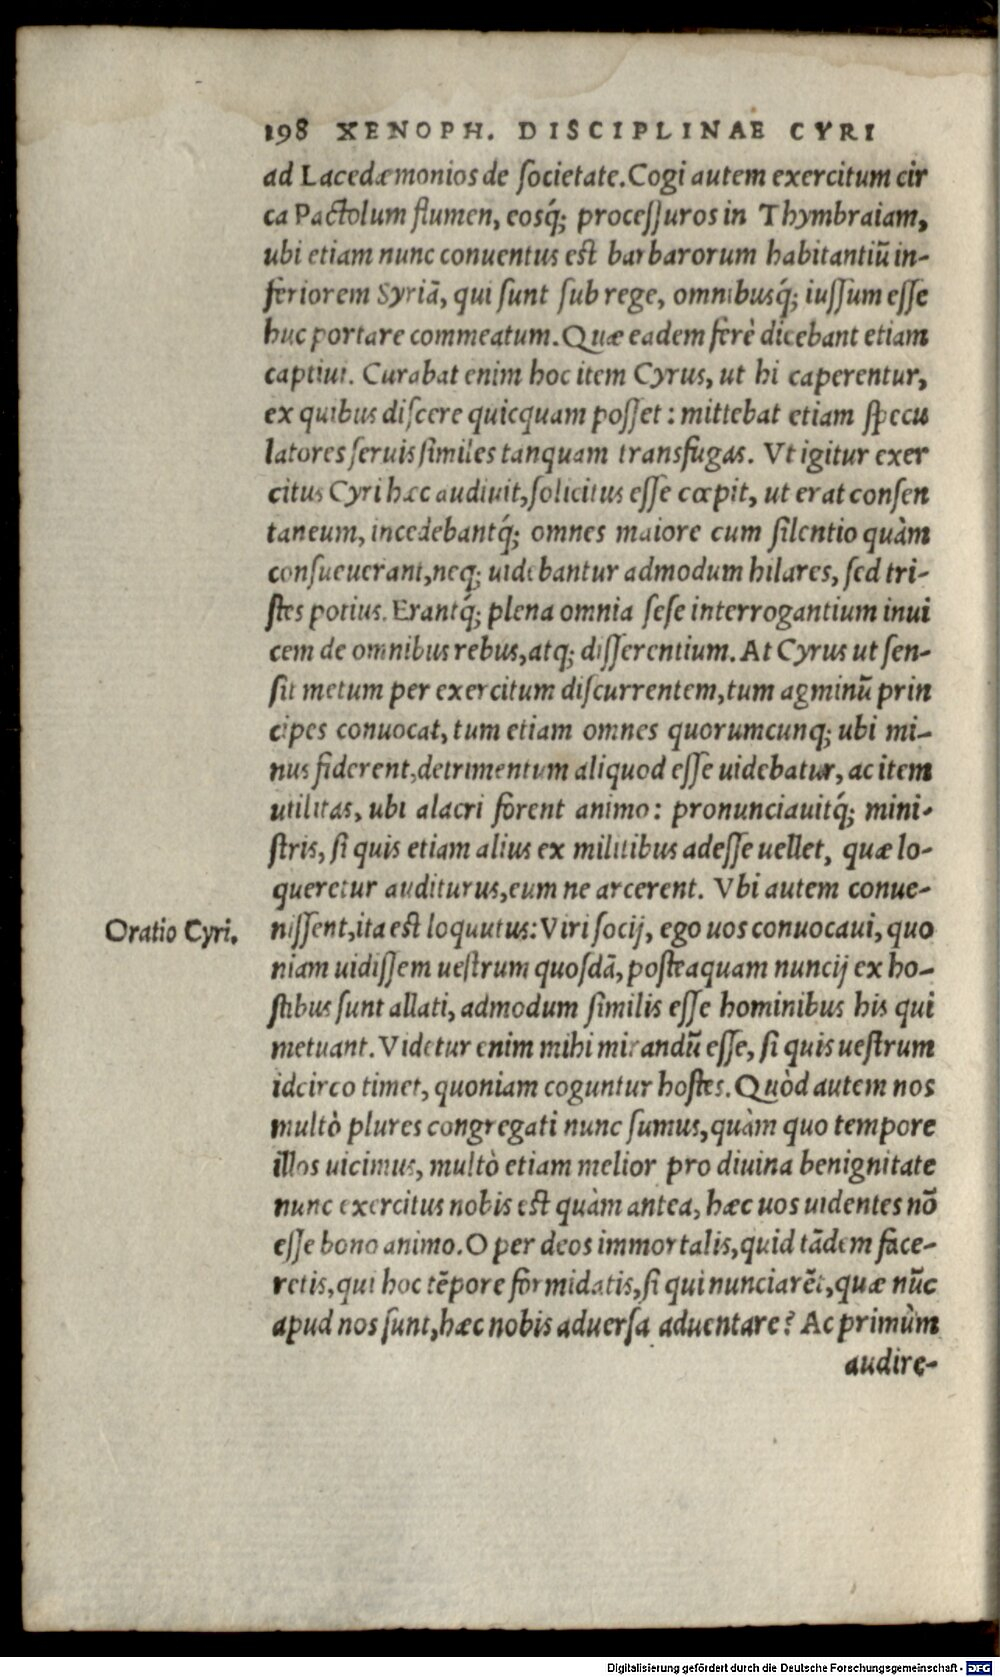 198 XENOPH. DISCIPLINAE CYRI
ad Lacedæmonios de ſocietate. Cogi autem exercitum cir
ca Pactolum flumen, eosq́; proceſſuros in Thymbraiam,
ubi etiam nunc conuentus est barbarorum habitantiũ in-
feriorem Syriã, qui ſunt ſub rege, omnibusq́; iuſſum eſſe
huc portare commeatum. Quæ eadem ferè dicebant etiam
captiui. Curabat enim hoc item Cyrus, ut hi caperentur,
ex quibus diſcere quicquam poſſet: mittebat etiam ſpecu
latores ſeruis ſimiles tanquam transfugas. Vt igitur exer
citus Cyri hæc audiuit, ſolicitus eſſe cœpit, ut erat conſen
taneum, incedebantq́; omnes maiore cum ſilentio quàm
conſueuerant, neq; uidebantur admodum hilares, ſed tri-
ſtes potius. Erantq́; plena omnia ſeſe interrogantium inui
cem de omnibus rebus, atq; diſſerentium. At Cyrus ut ſen-
ſit metum per exercitum diſcurrentem, tum agminũ prin
cipes conuocat, tum etiam omnes quorumcunq; ubi mi-
nus fiderent, detrimentum aliquod eſſe uidebatur, ac item
utilitas, ubi alacri forent animo: pronunciauitq́; mini-
ſtris, ſi quis etiam alius ex militibus adeſſe uellet, quæ lo-
queretur auditurus, eum ne arcerent. Vbi autem conue-
Oratio Cyri.
niſſent, ita est loquutus: Viri ſocij, ego uos conuocaui, quo
niam uidiſſem ueſtrum quoſdã, poſteaquam nuncij ex ho-
ſtibus ſunt allati, admodum ſimilis eſſe hominibus his qui
metuant. Videtur enim mihi mirandũ eſſe, ſi quis ueſtrum
idcirco timet, quoniam coguntur hoſtes. Quòd autem nos
multò plures congregati nunc ſumus, quàm quo tempore
illos uicimus, multò etiam melior pro diuina benignitate
nunc exercitus nobis est quàm antea, hæc uos uidentes nõ
eſſe bono animo. O per deos immortalis, quid tãdem face-
retis, qui hoc tẽpore formidatis, ſi qui nunciarẽt, quæ nũc
apud nos ſunt, hæc nobis aduerſa aduentare? Ac primùm
audire-
Digitalisierung gefördert durch die Deutsche Forschungsgemeinschaft - DFG